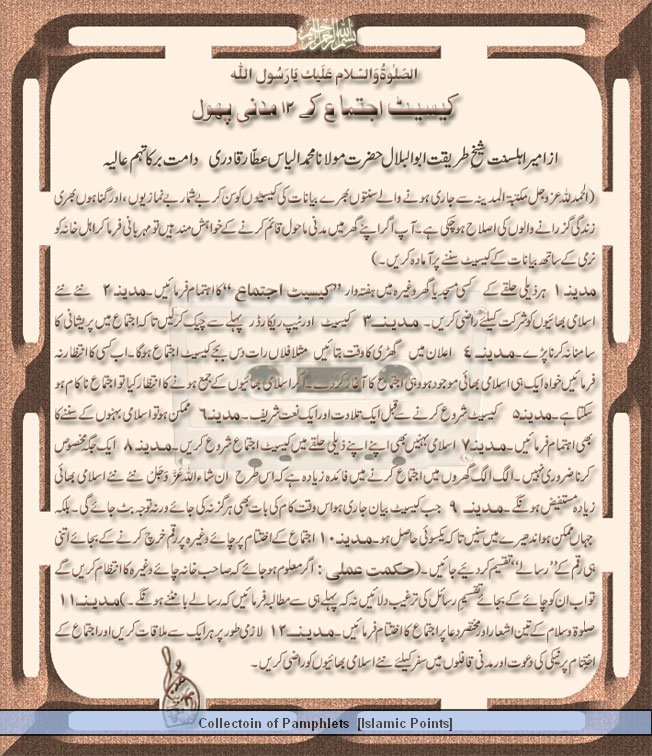 الصلوٰۃ والسلام علیک یارسول اللہ
کیسیٹ اجتماع کے ۱۲ مدنی پھول
از امیر اہلسنت شیخِ طریقت ابوالبلال حضرت مولانا محمد الیاس عطّار قادری دامت برکاتہم عالیہ
(الحمدللہ عزوجل مکتبۃ المدینہ سے جاری ہونے والے سنتوں بھرے بیانات کی کیسیٹوں کو سن کر بے شمار بے نمازیوں، اور گناہوں بھری
زندگی گزارنے والوں کی اصلاح ہو چکی ہے۔ آپ اگر اپنے گھر میں مدنی ماحول قائم کرنے کے خواہش مند ہیں تو مہربانی فرما کر اہل خانہ کو
نرمی کے ساتھ بیانات کے کیسیٹ سننے پر آمادہ کریں۔)
مدینہ ۱ ہر ذیلی حلقے کے کسی مسجد یا گھر وغیرہ میں ہفتہ وار "کیسیٹ اجتماع" کا اہتمام فرمائیں۔ مدینہ ۲ نئے نئے
اسلامی بھائیوں کو شرکت کیلئے راضی کریں۔ مدینہ ۳ کیسیٹ اور ٹیپ ریکارڈر پہلے سے چیک کرلیں تاکہ اجتماع میں پریشانی کا
سامنا نہ کرنا پڑے۔ مدینہ ٤ اعلان میں گھڑی کا وقت بتائیں مثلا فلاں رات دس بجے کیسیٹ اجتماع ہوگا۔ اب کسی کا انتظار نہ
فرمائیں خواہ ایک ہی اسلامی بھائی موجود ہو وہی اجتماع کا آغاز کردے۔ اگر اسلامی بھائیوں کے جمع ہونے کا انتظار کیا تو اجتماع ناکام ہو
سکتا ہے۔ مدینہ ۵ کیسیٹ شروع کرنے سے قبل ایک تلاوت اور ایک نعت شریف۔ مدینہ ٦ ممکن ہو تو اسلامی بہنوں کے سننے کا
بھی اہتمام فرمائیں۔ مدینہ ۷ اسلامی بہنیں بھی اپنے اپنے ذیلی حلقے میں کیسیٹ اجتماع شروع کریں۔ مدینہ ۸ ایک جگہ مخصوص
کرنا ضروری نہیں۔ الگ الگ گھروں میں اجتماع کرنے میں فائدہ زیادہ ہے کہ اس طرح ان شاء اللہ عَزَّوَجَلّ نئے نئے اسلامی بھائی
زیادہ مستفیض ہونگے۔ مدینہ ۹ جب کیسیٹ بیان جاری ہو اس وقت کام کی بات بھی ہرگز نہ کی جائے ورنہ توجہ بٹ جائے گی۔ بلکہ
جہاں ممکن ہو اندھیرے میں سنیں تاکہ یکسوئی حاصل ہو۔ مدینہ ۱۰ اجتماع کے اختتام پر چائے وغیرہ پر رقم خرچ کرنے کے بجائے اتنی
ہی رقم کے "رسالے" تقسیم کر دیئے جائیں۔ (حکمت عملی: اگر معلوم ہوجائے کہ صاحب خانہ چائے وغیرہ کا انتظام کریں گے
تو اب ان کو چائے کے بجائے تقسیم رسائل کی ترغیب دلائیں نہ کہ پہلے ہی سے مطالبہ فرمائیں کہ رسالے بانٹنے ہونگے۔) مدینہ ۱۱
صلوٰۃ وسلام کے تین اشعار اور مختصر دعا پر اجتماع کا اختتام فرمائیں۔ مدینہ ۱۲ لازمی طور پر ہر ایک سے ملاقات کریں اور اجتماع کے
اختتام پر نیکی کی دعوت اور مدنی قافلوں میں سفر کیلئے نئے اسلامی بھائیوں کو راضی کریں۔
Collectoin of Pamphlets [Islamic Points]